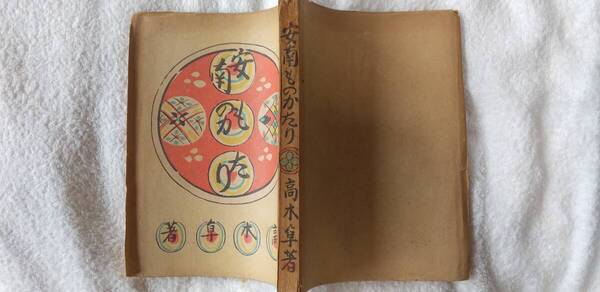 安南
ものが
たり
高木卓著
安南ものがたり
高木卓著